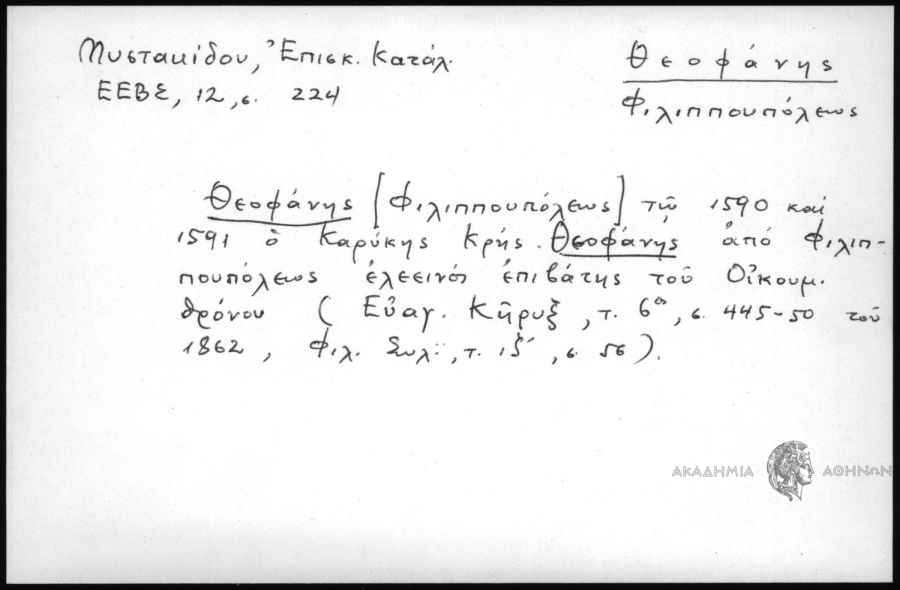 Μυστακίδου, Ἐπισκ. Κατάλ.
ΕΕΒΣ, 12, σ. 224
Θεοφάνης
Φιλιππουπόλεως
Θεοφάνης [Φιλιππουπόλεως] τῷ 1590 καί
1591 ὁ Καρύκης Κρής. Θεοφάνης ἀπό Φιλιπ-
πουπόλεως ἐλεεινός ἐπιβάτης τοῦ Οἰκουμ.
θρόνου (Εὐαγ. Κῆρυξ, τ. 6ος, σ. 445-50 τοῦ
1862, Φιλ. Συλ., τ. ιξ´, σ. 56).
ΑΚΑΔΗΜΙΑ ΑΘΗΝΩΝ